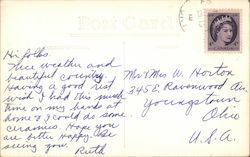 Post Card
Hi folks.
Nice weather and
beautiful country.
Having a good rest
wish I had this much
time on my hands at
home & I could do some
ceramics. Hope you
are better Happy. Be
seeing you.
Ruth
Mr & Mrs W. Horton
3458 Ravenwood Av.
Youngstown
Ohio
U.S.A.